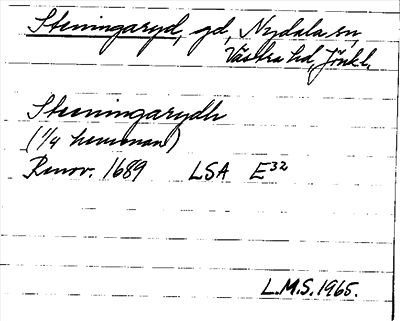 Steningaryd, gd, Nydala sn,
Västra hd, Jönk l.
Steningarydh
(1/4 hemman)
Renov. 1689 LSA E32
L.M.S. 1965.